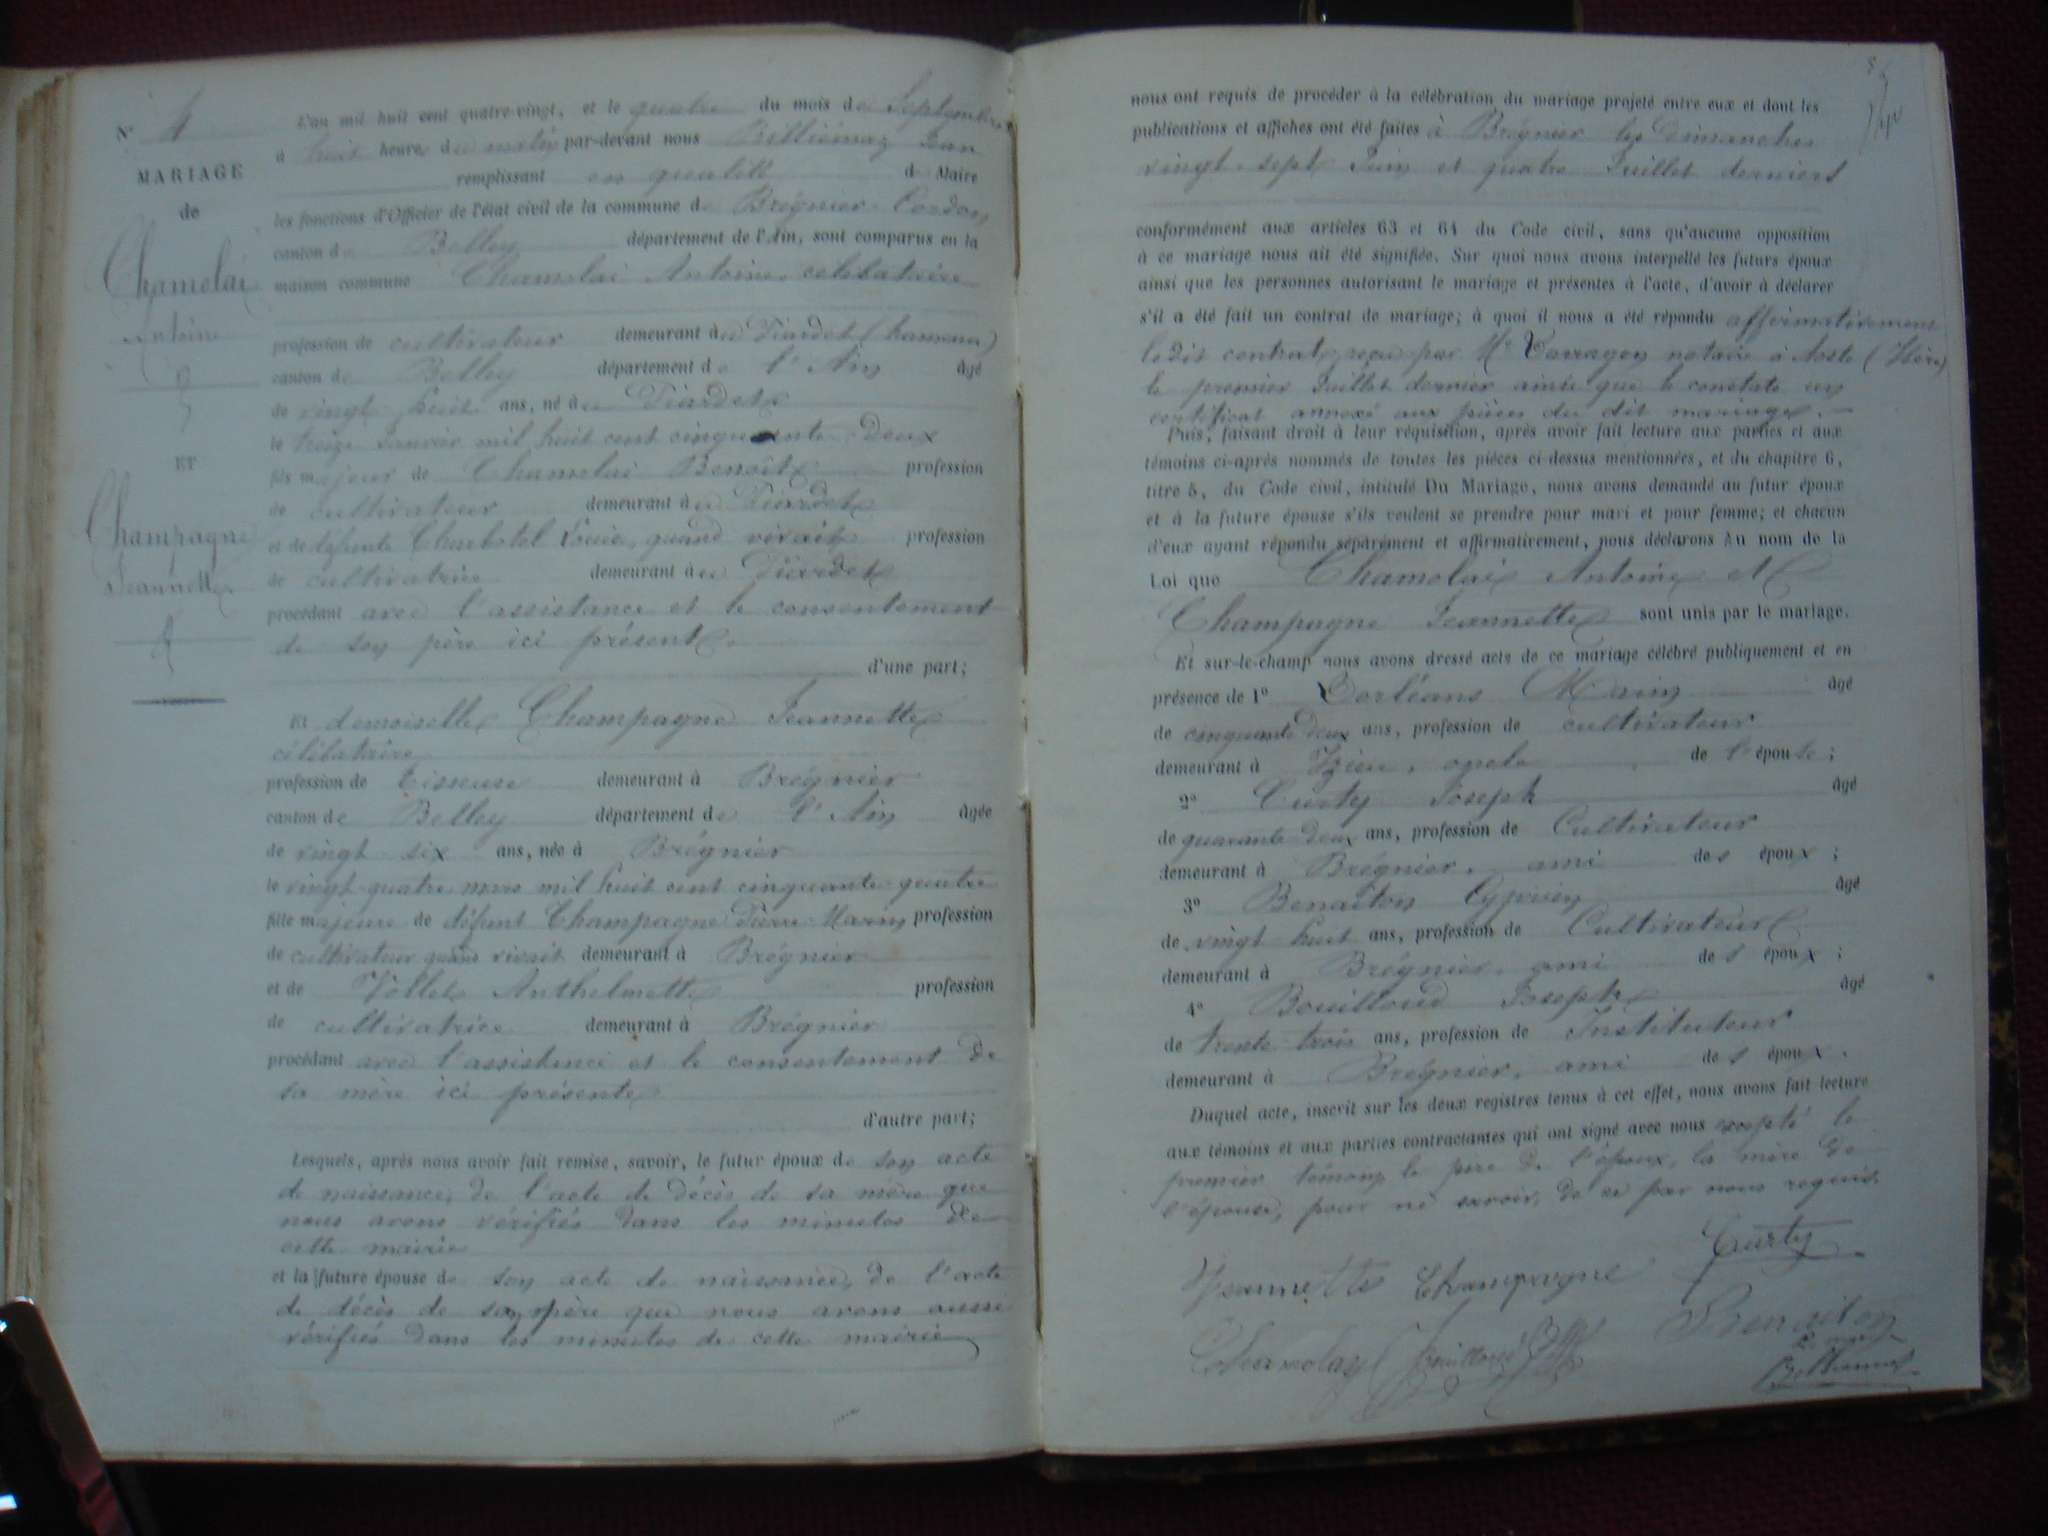 N° 4
MARIAGE
de
Chamolai
Antoine
ET
Champagne
Jeannette
L'an mil huit cent quatre-vingt, et le quatre du mois de Septembre
à huit heures du matin par-devant nous Billiémaz Jean
remplissant en qualité de Maire
les fonctions d'Officier de l'état civil de la commune de Brégnier-Cordon
canton de Belley département de l'Ain, sont comparus en la
maison commune Chamolai Antoine célibataire
profession de cultivateur demeurant à Tiardet
canton de Belley département de l'Ain âgé
de vingt huit ans, né à Tiardet
le treize Janvier mil huit cent cinquante-deux
fils majeur de Chamolai Benoît profession
de cultivateur demeurant à Tiardet
et de défunte quand vivait profession
de cultivatrice demeurant à Tiardet
procédant avec l'assistance et le consentement
de son père ici présent
d'une part;
Et demoiselle Champagne Jeannette
célibataire
profession de tisseuse demeurant à Brégnier
canton de Belley département de l'Ain âgée
de vingt six ans, née à Brégnier
le vingt-quatre mars mil huit cent cinquante-quatre
fille majeure de défunt Champagne Pierre-Marin profession
de cultivateur quand vivait demeurant à Brégnier
et de Vollet Anthelmette profession
de cultivatrice demeurant à Brégnier
procédant avec l'assistance et le consentement de
sa mère ici présente
d'autre part;
Lesquels, après nous avoir fait remise, savoir, le futur époux de son acte
de naissance, de l'acte de décès de sa mère que
nous avons vérifiés dans les minutes de
cette mairie
et la future épouse de son acte de naissance, de l'acte
de décès de son père que nous avons aussi
vérifiés dans les minutes de cette mairie
nous ont requis de procéder à la célébration du mariage projeté entre eux et dont les
publications et affiches ont été faites à Brégnier les dimanches
vingt-sept Juin et quatre Juillet derniers
conformément aux articles 63 et 64 du Code civil, sans qu'aucune opposition
à ce mariage nous ait été signifiée. Sur quoi nous avons interpellé les futurs époux
ainsi que les personnes autorisant le mariage et présentes à l'acte, d'avoir à déclarer
s'il a été fait un contrat de mariage; à quoi il nous a été répondu affirmativement
ledit contrat reçu par Me Varragon notaire à Aoste (Isère)
le premier Juillet dernier ainsi que le constate un
certificat annexé aux pièces du dit mariage.
Puis, faisant droit à leur réquisition, après avoir fait lecture aux parties et aux
témoins ci-après nommés de toutes les pièces ci-dessus mentionnées, et du chapitre 6,
titre 5, du Code civil, intitulé Du Mariage, nous avons demandé au futur époux
et à la future épouse s'ils veulent se prendre pour mari et pour femme; et chacun
d'eux ayant répondu séparément et affirmativement, nous déclarons au nom de la
Loi que Chamolai Antoine et
Champagne Jeannette sont unis par le mariage.
Et sur-le-champ nous avons dressé acte de ce mariage célébré publiquement et en
présence de 1° Dorléans Marin âgé
de cinquante deux ans, profession de cultivateur
demeurant à Izieu, oncle de l'épouse;
2° Curty Joseph âgé
de quarante-deux ans, profession de Cultivateur
demeurant à Brégnier, ami des époux;
3° Benaiton Cyprien âgé
de vingt huit ans, profession de Cultivateur
demeurant à Brégnier, ami des époux;
4° Bouilloud Joseph âgé
de trente trois ans, profession de Instituteur
demeurant à Brégnier, ami des époux.
Duquel acte, inscrit sur les deux registres tenus à cet effet, nous avons fait lecture
aux témoins et aux parties contractantes qui ont signé avec nous excepté le
premier témoin, le père de l'époux, la mère de
l'épouse, pour ne savoir, de ce par nous requis.
Jeannette Champagne Curty
Chamolay Bouilloud Benaiton
Billiemaz